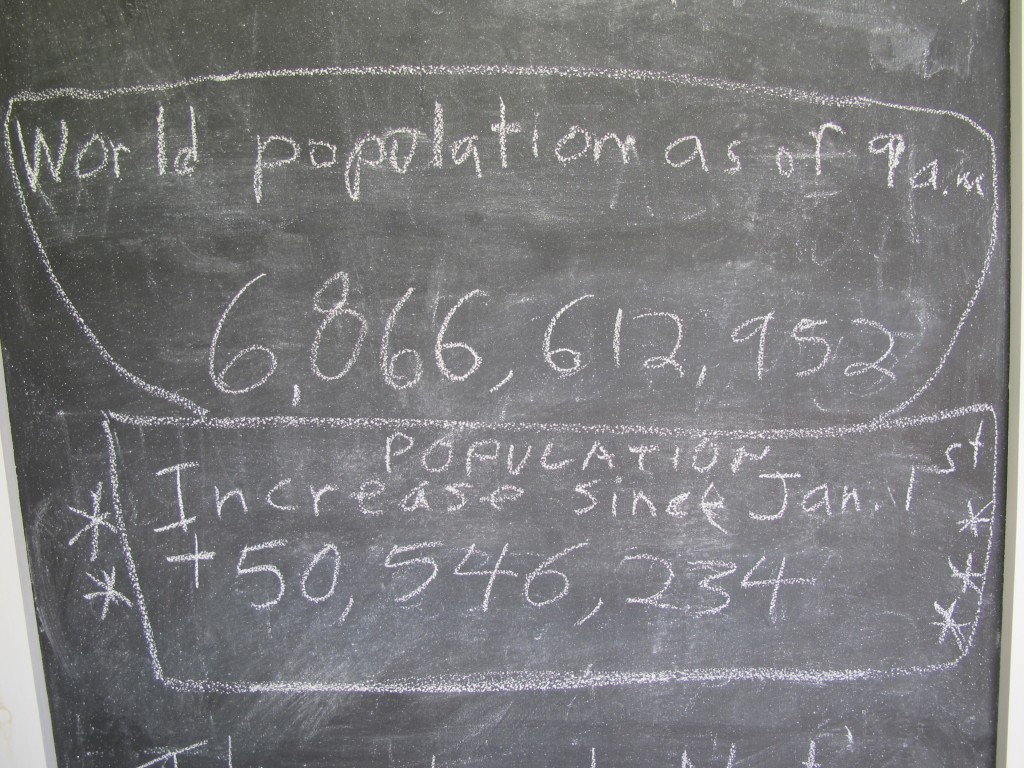 World population as of 9 a.m
6,866,612,952
POPULATION
Increase since Jan. 1st
+50,546,234